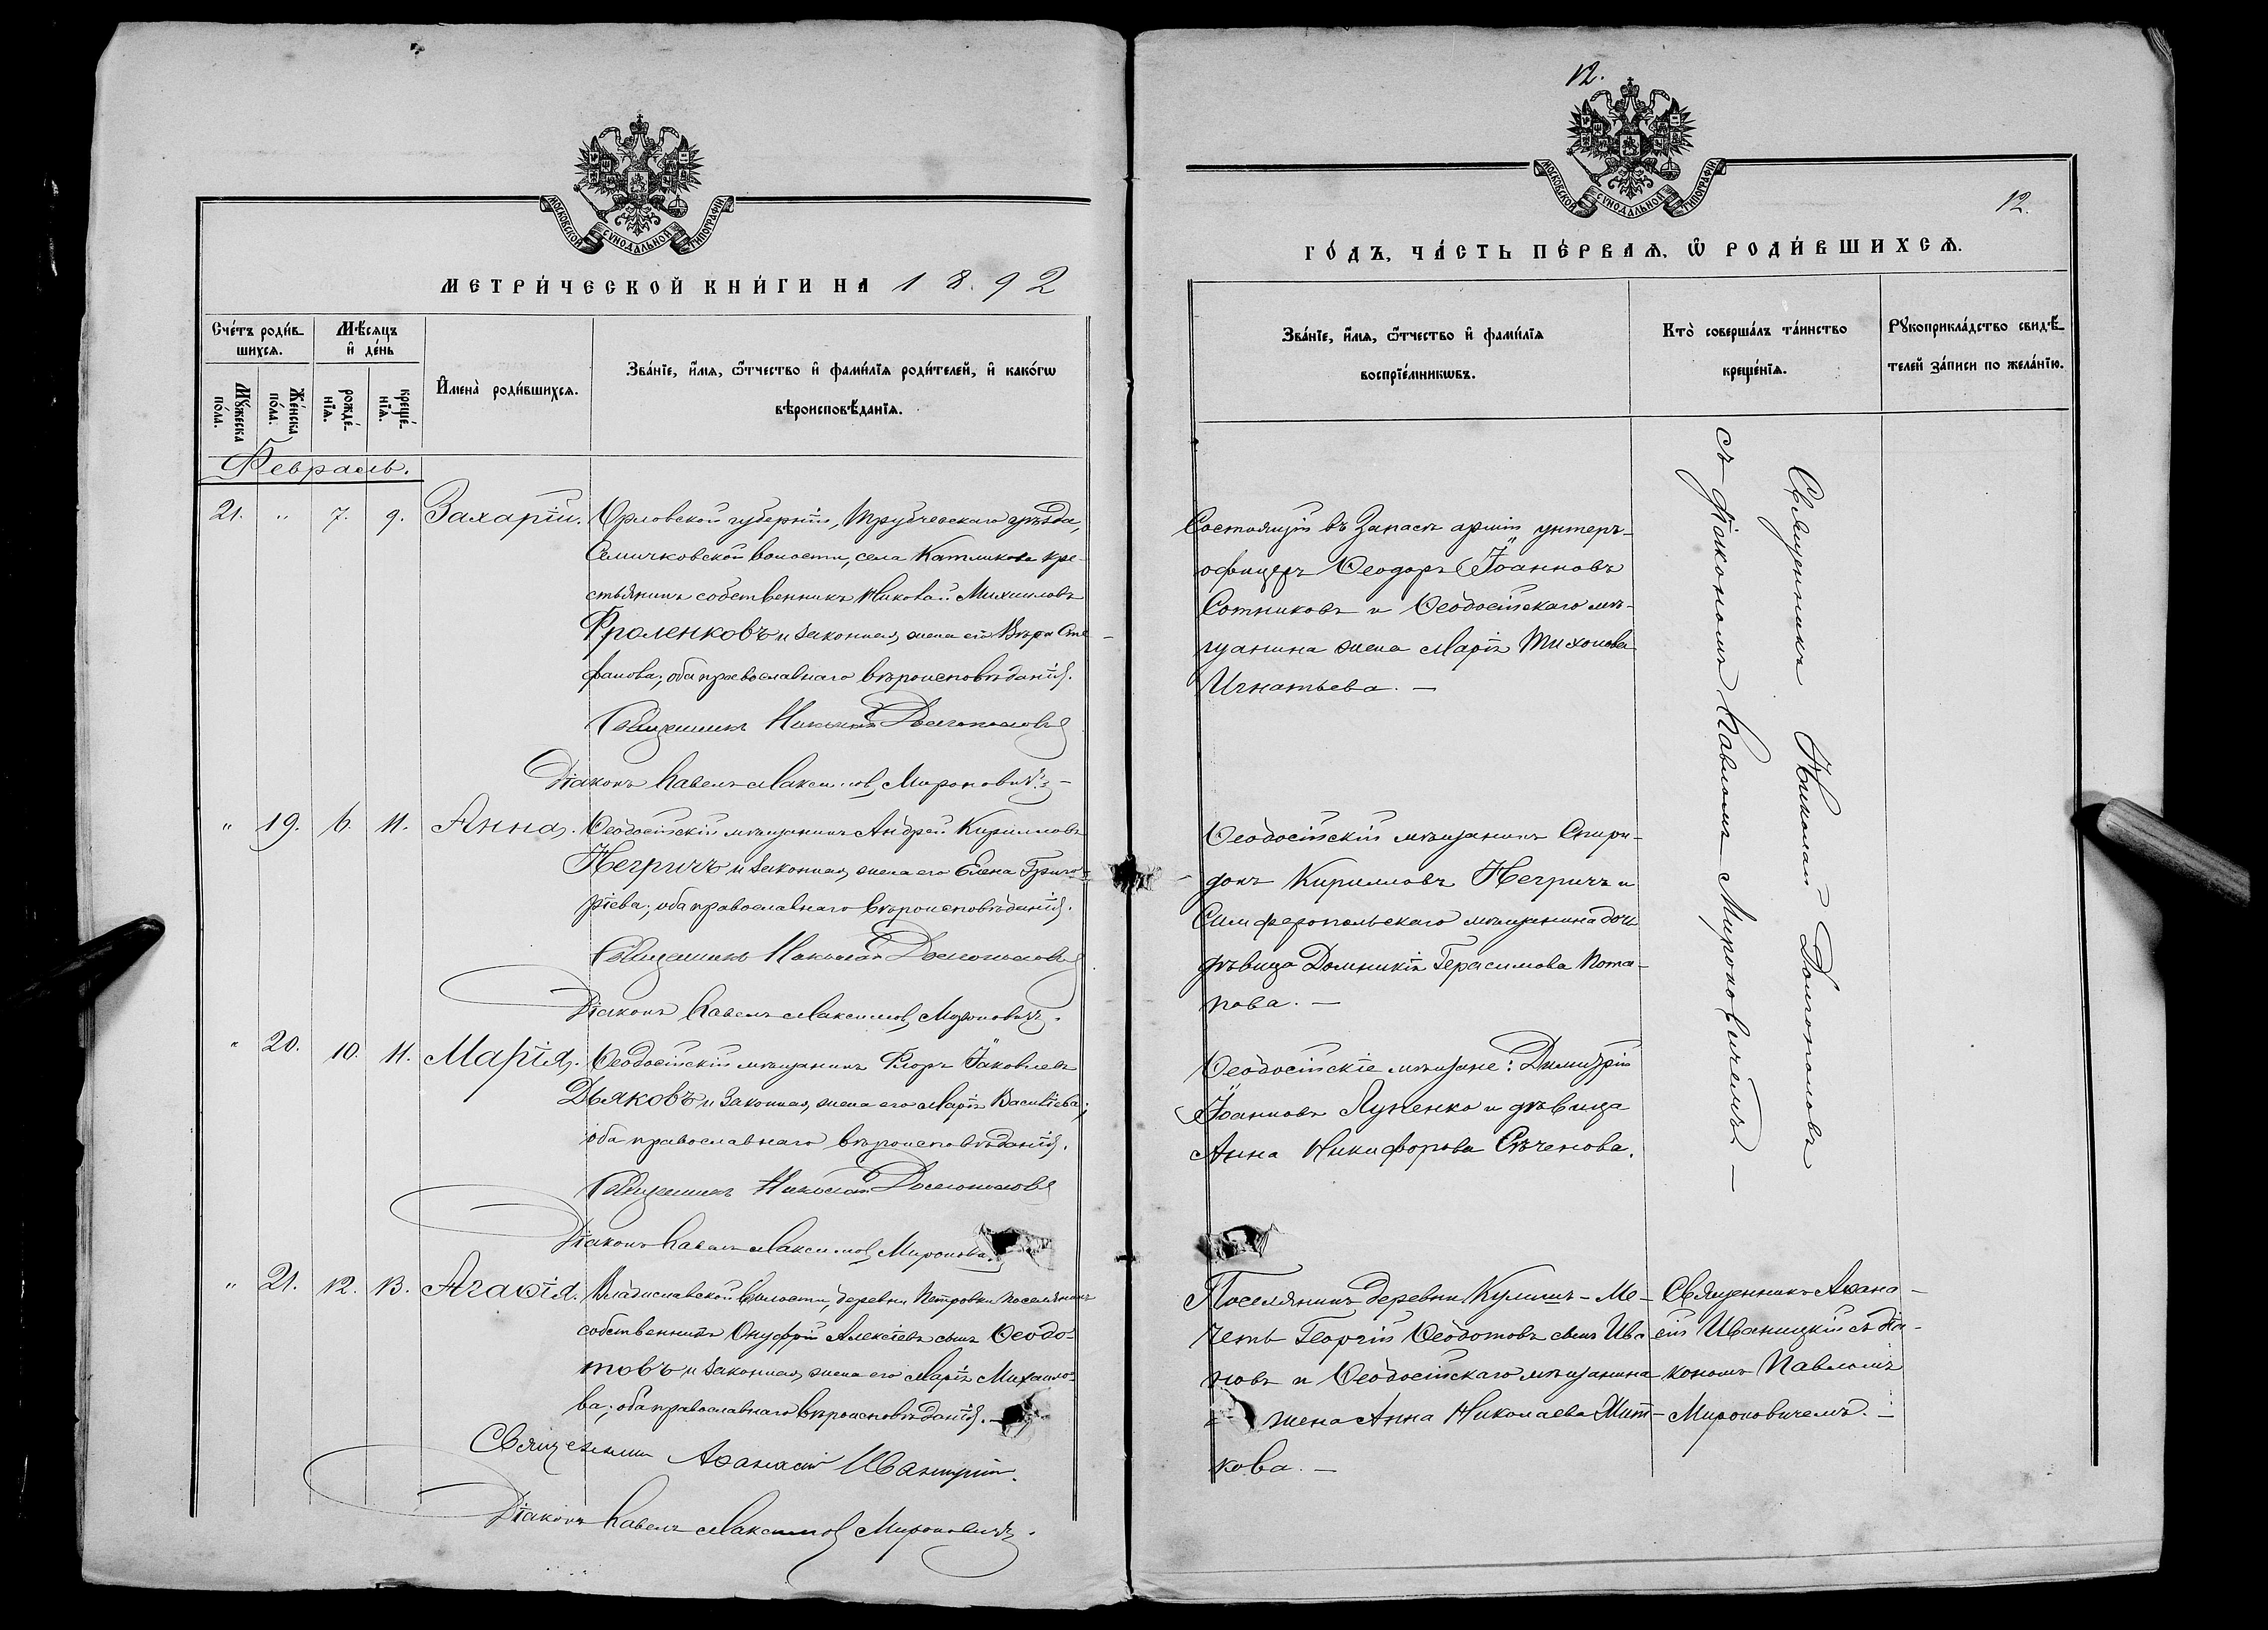 МОСКОВСКОЙ СУНОДАЛЬНОЙ ТИПОГРАФІИ
МЕТРИ́ЧЕСКОЙ КНИ́ГИ НА 1892
Сче́тъ роди́в-
шихсѧ.
Мѣ́сѧцъ
и҆ де́нь
Мꙋ́жеска
по́ла.
Же́нска
по́ла.
рожде́-
нїѧ.
креще́-
нїѧ.
И҆мена̀ роди́вшихсѧ.
Зва́нїе, и҆́мѧ, ѻ҆́тчество и҆ фами́лїѧ роди́телей, и҆ како́гѡ
вѣроисповѣ́данїѧ.
Февраль.
21. " 7. 9. Захарій.
Орловской губерніи, Трубчевскаго уѣзда,
Семичковской волости, села Катликова кре-
стьянинъ собственникъ Николай Михаиловъ
Фроленковъ и законная жена его Вѣра Сте-
фанова; оба православнаго вѣроисповѣданія.
Священникъ Николай Долгополовъ
Діаконъ Павелъ Максимов Мироновичъ
" 19. 6. 11. Анна.
Ѳеодосійскій мѣщанинъ Андрей Кирилловъ
Негричъ и законная жена его Елена Григо-
ріева; оба православнаго вѣроисповѣданія.
Священникъ Николай Долгополовъ
Діаконъ Павелъ Максимов Мироновичъ.
" 20. 10. 11. Марія.
Ѳеодосійскій мѣщанинъ Флоръ Іаковлевъ
Дьяковъ и законная жена его Марія Василіева;
оба православнаго вѣроисповѣданія.
Священникъ Николай Долгополовъ
Діаконъ Павелъ Максимов
" 21. 12. 13. Агаѳія.
Владиславской волости, деревни Петровки поселянинъ
собственникъ Онуфрій Алексіевъ сынъ Ѳеодо-
товъ и законная жена его Марія Михаило-
ва; оба православнаго вѣроисповѣданія.
Священникъ Аѳанасій Иваницкій.
Діаконъ Павелъ Максимов Мироновичъ.
12.
МОСКОВСКОЙ СУНОДАЛЬНОЙ ТИПОГРАФІИ
12.
ГО́ДЪ, ЧА́СТЬ ПЕ́РВАѦ, Ѡ҆ РОДИ́ВШИХСѦ.
Зва́нїе, и҆́мѧ, ѻ҆́тчество и҆ фами́лїѧ
воспрїе́мникѡвъ.
Кто̀ соверша́лъ та́инство
креще́нїѧ.
Рꙋкоприкла́дство свидѣ́-
телей за́писи по жела́нїю.
Состоящій въ запасѣ арміи унтеръ-
офицеръ Ѳеодоръ Іоанновъ
Сотниковъ и Ѳеодосійскаго мѣ-
щанина жена Марія Тихонова
Игнатьева. —
Священникъ Николай Долгополовъ
съ діакономъ Павломъ Мироновичемъ —
Ѳеодосійскій мѣщанинъ Спири-
донъ Кирилловъ Негричъ и
Симферопольскаго мѣщанина дочь
дѣвица Домникія Герасимова Пота-
пова. —
Ѳеодосійскіе мѣщане: Димитрій
Іоанновъ Луценко и дѣвица
Анна Никифорова Сѣченова.
Поселянинъ деревни Кулишъ-Ме-
четь Георгій Ѳеодотовъ сынъ Ива-
новъ и Ѳеодосійскаго мѣщанина
жена Анна Николаева Мит-
кова. —
Священникъ Аѳана-
сій Иваницкій съ діа-
кономъ Павломъ
Мироновичемъ. —